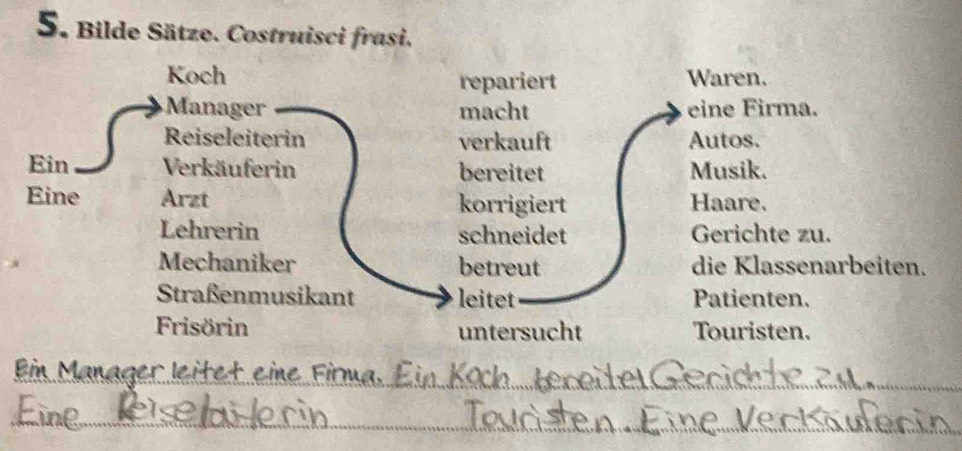 5. Bilde Sätze. Costruisci frasi.
Koch repariert Waren.
Manager macht eine Firma.
Reiseleiterin verkauft Autos.
Ein Verkäuferin bereitet Musik.
Eine Arzt korrigiert Haare.
Lehrerin schneidet Gerichte zu.
Mechaniker betreut die Klassenarbeiten.
Straßenmusikant leitet Patienten.
Frisörin untersucht Touristen.
Ein Manager leitet eine Firma. Ein Koch bereitet Gerichte zu.
Eine Reiseleiterin Touristen. Eine Verkäuferin